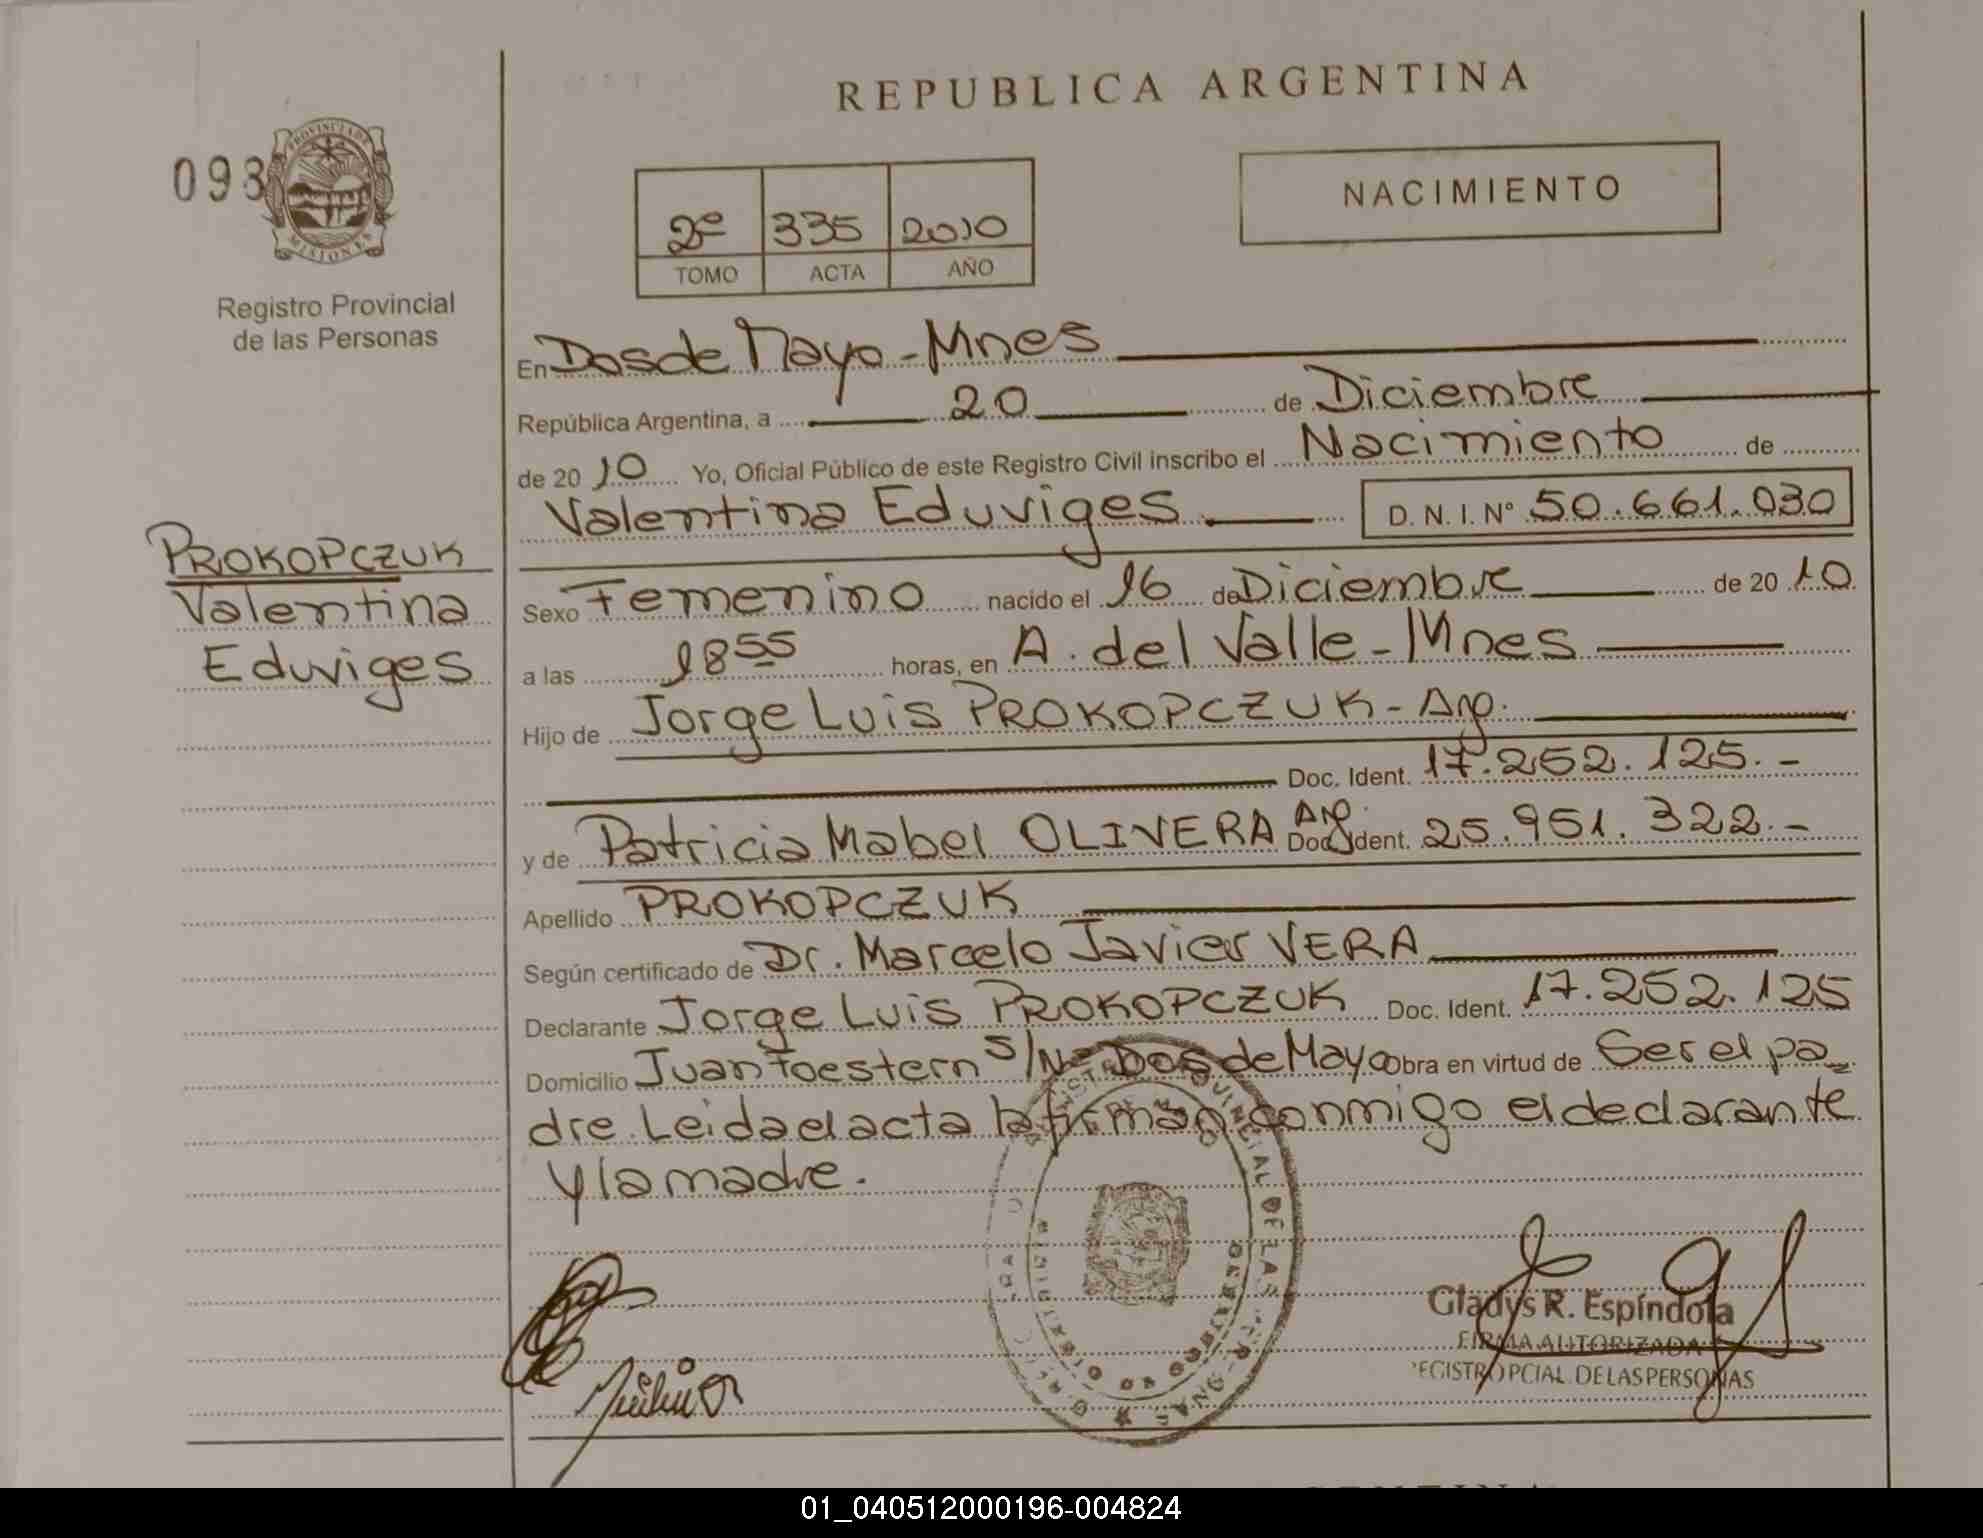 REPUBLICA ARGENTINA
098
PROVINCIA DE
MISIONES
Registro Provincial
de las Personas
2º 335 2010
TOMO ACTA AÑO
NACIMIENTO
En Dos de Mayo - Mnes
República Argentina, a 20 de Diciembre
de 2010 Yo, Oficial Público de este Registro Civil inscribo el Nacimiento de
Valentina Eduviges D. N. I. Nº 50.661.030
PROKOPCZUK
Valentina
Eduviges
Sexo Femenino nacido el 16 de Diciembre de 2010
a las 18 55 horas, en A. del Valle - Mnes
Hijo de Jorge Luis PROKOPCZUK - Arg.
Doc. Ident. 17.252.125.-
y de Patricia Mabel OLIVERA Arg. Doc. Ident. 25.951.322.-
Apellido PROKOPCZUK
Según certificado de Dr. Marcelo Javier VERA
Declarante Jorge Luis PROKOPCZUK Doc. Ident. 17.252.125
Domicilio Juan Foestern S/Nº Dos de Mayo Obra en virtud de Ser el pa
dre. Leida el acta la firman conmigo el declarante
y la madre.
Gladys R. Espíndola
FIRMA AUTORIZADA
REGISTRO PCIAL. DE LAS PERSONAS
01_040512000196-004824